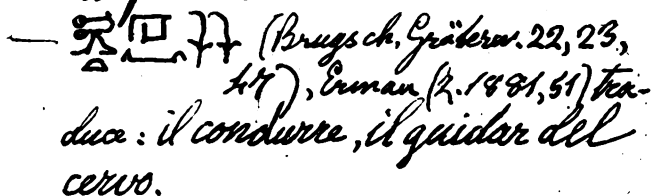 — (Brugsch, Gräberw. 22, 23,
47), Erman (Z. 1881, 51) tra-
duce: il condurre, il guidar del
cervo.